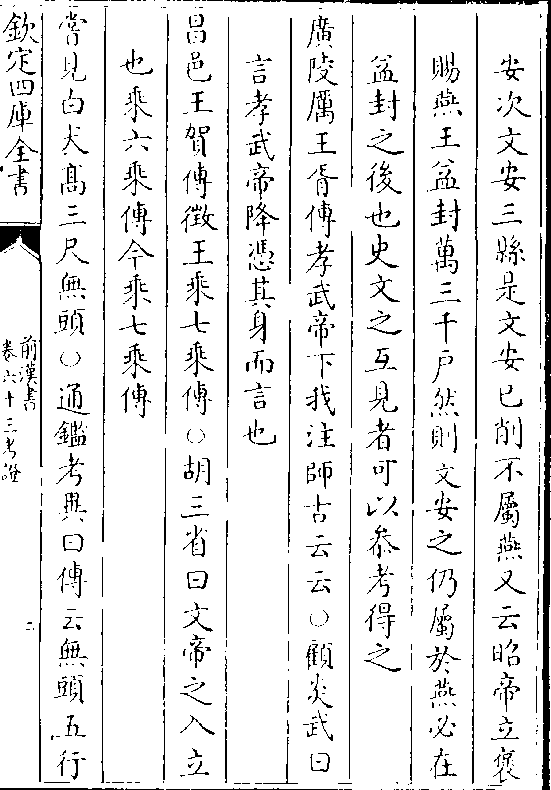 安次文安三縣是文安已削不屬燕又云昭帝立褒
賜燕王益封萬三千戶然則文安之仍屬於燕必在
益封之後也史文之互見者可以叅考得之
廣陵厲王胥傳孝武帝下我注師古云云○顧炎武曰
言孝武帝降憑其身而言也
昌邑王賀傳徵王乘七乘傳○胡三省曰文帝之入立
也乘六乘傳今乘七乘傳
嘗見白犬髙三尺無頭○通鑑考異曰傳云無頭五行
欽定四庫全書
前漢書
卷六十三考證
二